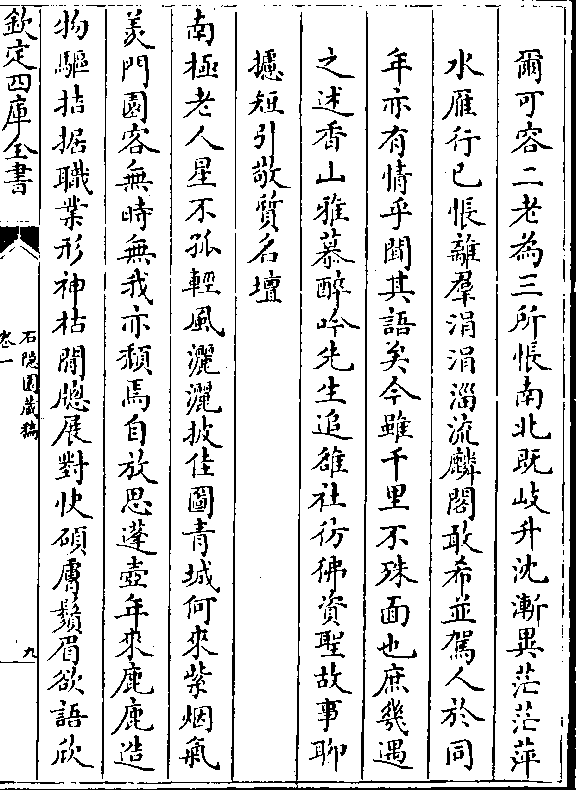 爾可容二老為三所悵南北既岐升沈漸異茫茫萍
水雁行已悵離羣涓涓淄流麟閣敢希並駕人於同
年亦有情乎聞其語矣今雖千里不殊面也庶幾遇
之述香山雅慕醉吟先生追雒社彷彿資聖故事聊
攄短引敬質名壇
南極老人星不孤輕風灑灑披佳圖青城何來紫烟氣
羨門園客無時無我亦頽焉自放思蓬壺年來鹿鹿造
物驅拮据職業形神枯閒牕展對快碩膚鬚眉欲語欣
欽定四庫全書
石隱園藏稿
卷一
九